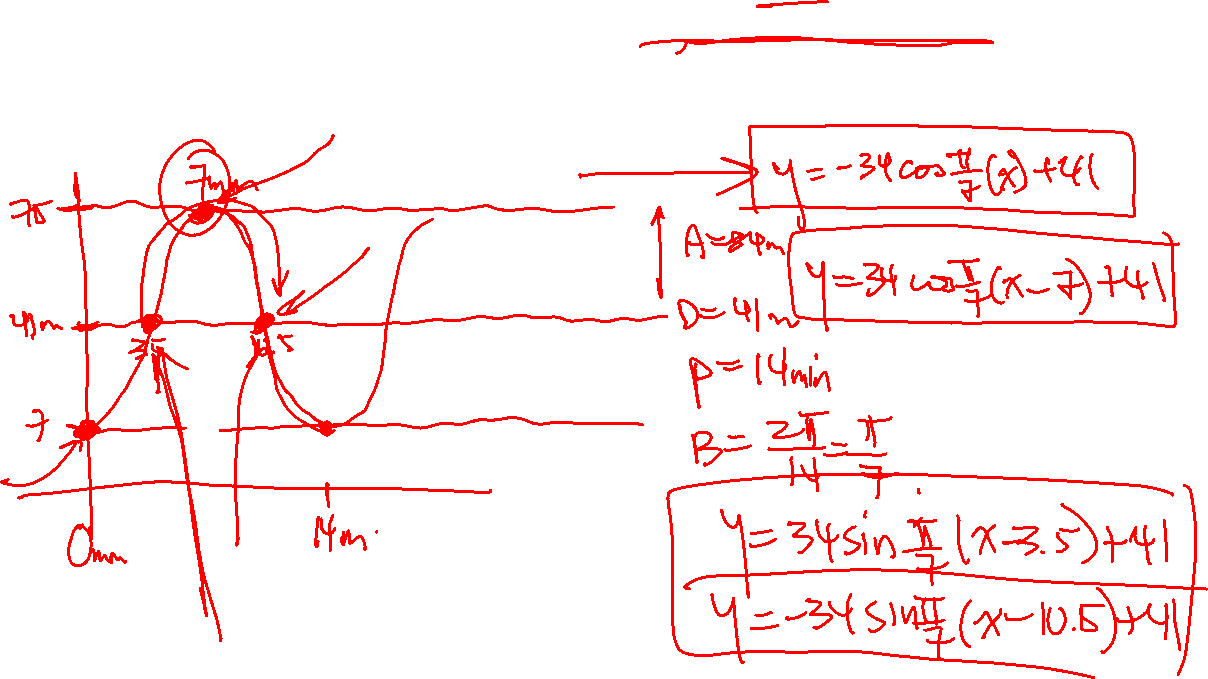 7min
75
41m
3.5
10.5
7
0min
14m.
y = -34cos π/7 (x) + 41
A = 34m
y = 34 cos π/7 (x - 7) + 41
D = 41m
P = 14min
B = 2π/14 = π/7
y = 34sin π/7 (x - 3.5) + 41
y = -34 sin π/7 (x - 10.5) + 41